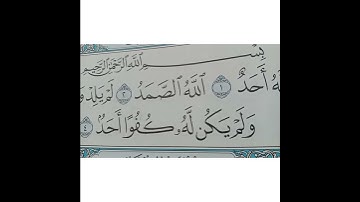 بِسْمِ اللَّهِ الرَّحْمَٰنِ الرَّحِيمِ
أَحَدٌ ١ اللَّهُ الصَّمَدُ ٢ لَمْ يَلِدْ وَ
وَلَمْ يَكُن لَّهُ كُفُوًا أَحَدٌ ٤